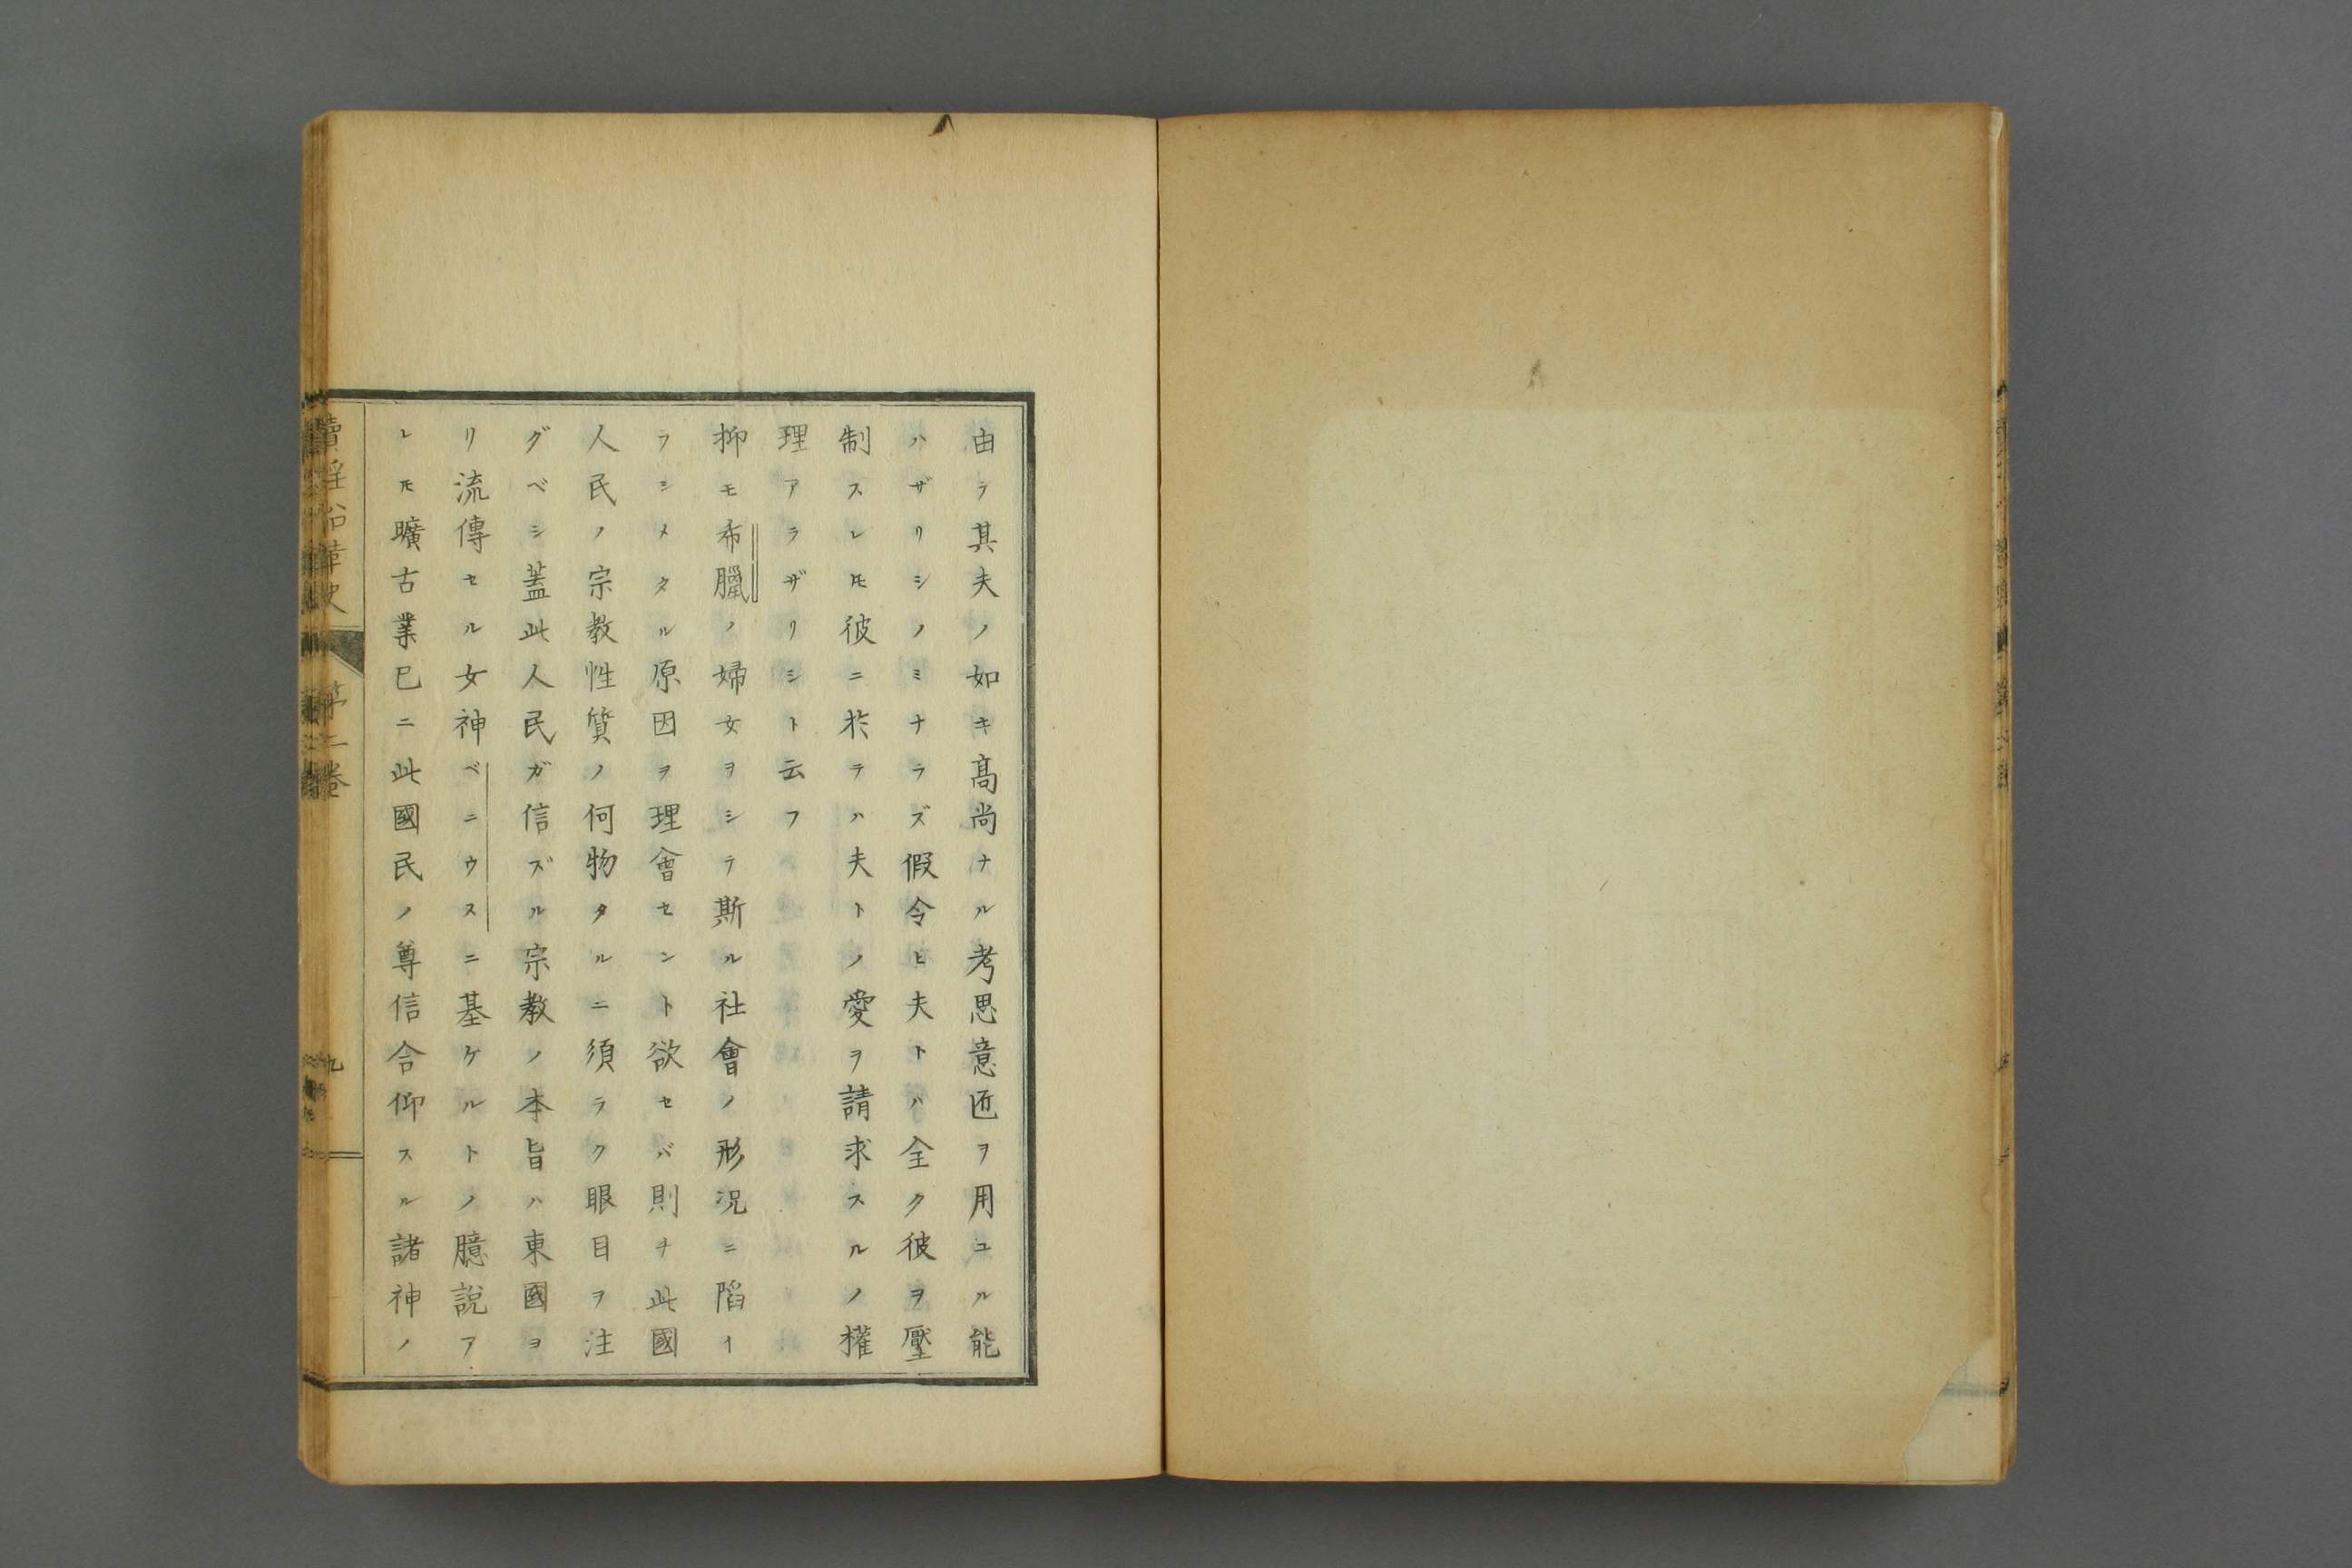 由テ其夫ノ如キ高尚ナル考思意匠ヲ用ユル能
ハザリシノミナラズ假令ヒ夫トハ全ク彼ヲ壓
制スレ𪜈彼ニ於テハ夫トノ愛ヲ請求スルノ權
理アラザリシト云フ
抑モ希臘ノ婦女ヲシテ斯ル社會ノ形况ニ陷イ
ラシメタル原因ヲ理會セント欲セバ則チ此國
人民ノ宗教性質ノ何物タルニ須ラク眼目ヲ注
グベシ葢此人民ガ信ズル宗教ノ本旨ハ東國ヨ
リ流傳セル女神ベニウスニ基ケルトノ臆説ア
レ𪜈曠古業已ニ此國民ノ尊信合仰スル諸神ノ
賣淫沿革史
第二卷
九